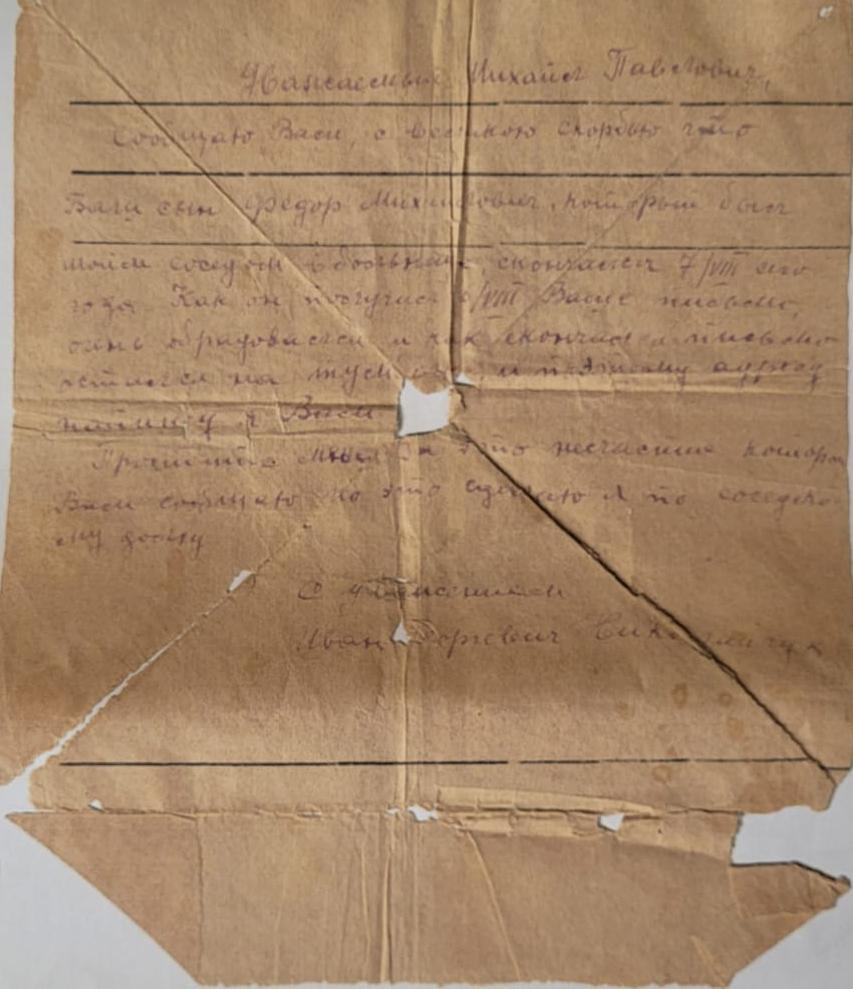 Уважаемый Михаил Павлович,
Сообщаю Вам, с великою скорбью что
Ваш сын Федор Михайлович, который был
моим соседом в больнице, скончался 7/VIII сего
года. Как он получил /VIII Ваше письмо,
очень обрадовался и как скончался письмо
осталось на и по этому адресу
пишу я Вам
Простите меня за это несчастие которое
Вам сообщаю но это сделаю я по соседско-
му долгу
С уважением
Иван